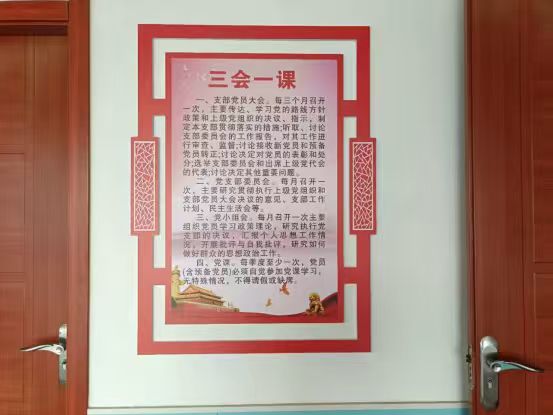 三会一课
一、支部党员大会。每三个月召开
一次，主要传达、学习党的路线方针
政策和上级党组织的决议、指示，制
定本支部贯彻落实的措施;听取、讨论
支部委员会的工作报告，对其工作进
行审查、监督;讨论接收新党员和预备
党员转正;讨论决定对党员的表彰和处
分;选举支部委员会和出席上级党代会
的代表;讨论决定其他重要问题。
二、党支部委员会。每月召开一
次，主要研究贯彻执行上级党组织和
支部党员大会决议的意见、支部工作
计划、民主生活会等。
三、党小组会。每月召开一次主要
组织党员学习政策理论，研究执行党
支部的决议，汇报个人思想工作情
况，开展批评与自我批评，研究如何
做好群众的思想政治工作。
四、党课。每季度至少一次，党员
(含预备党员)必须自觉参加党课学习，
无特殊情况，不得请假或缺席。